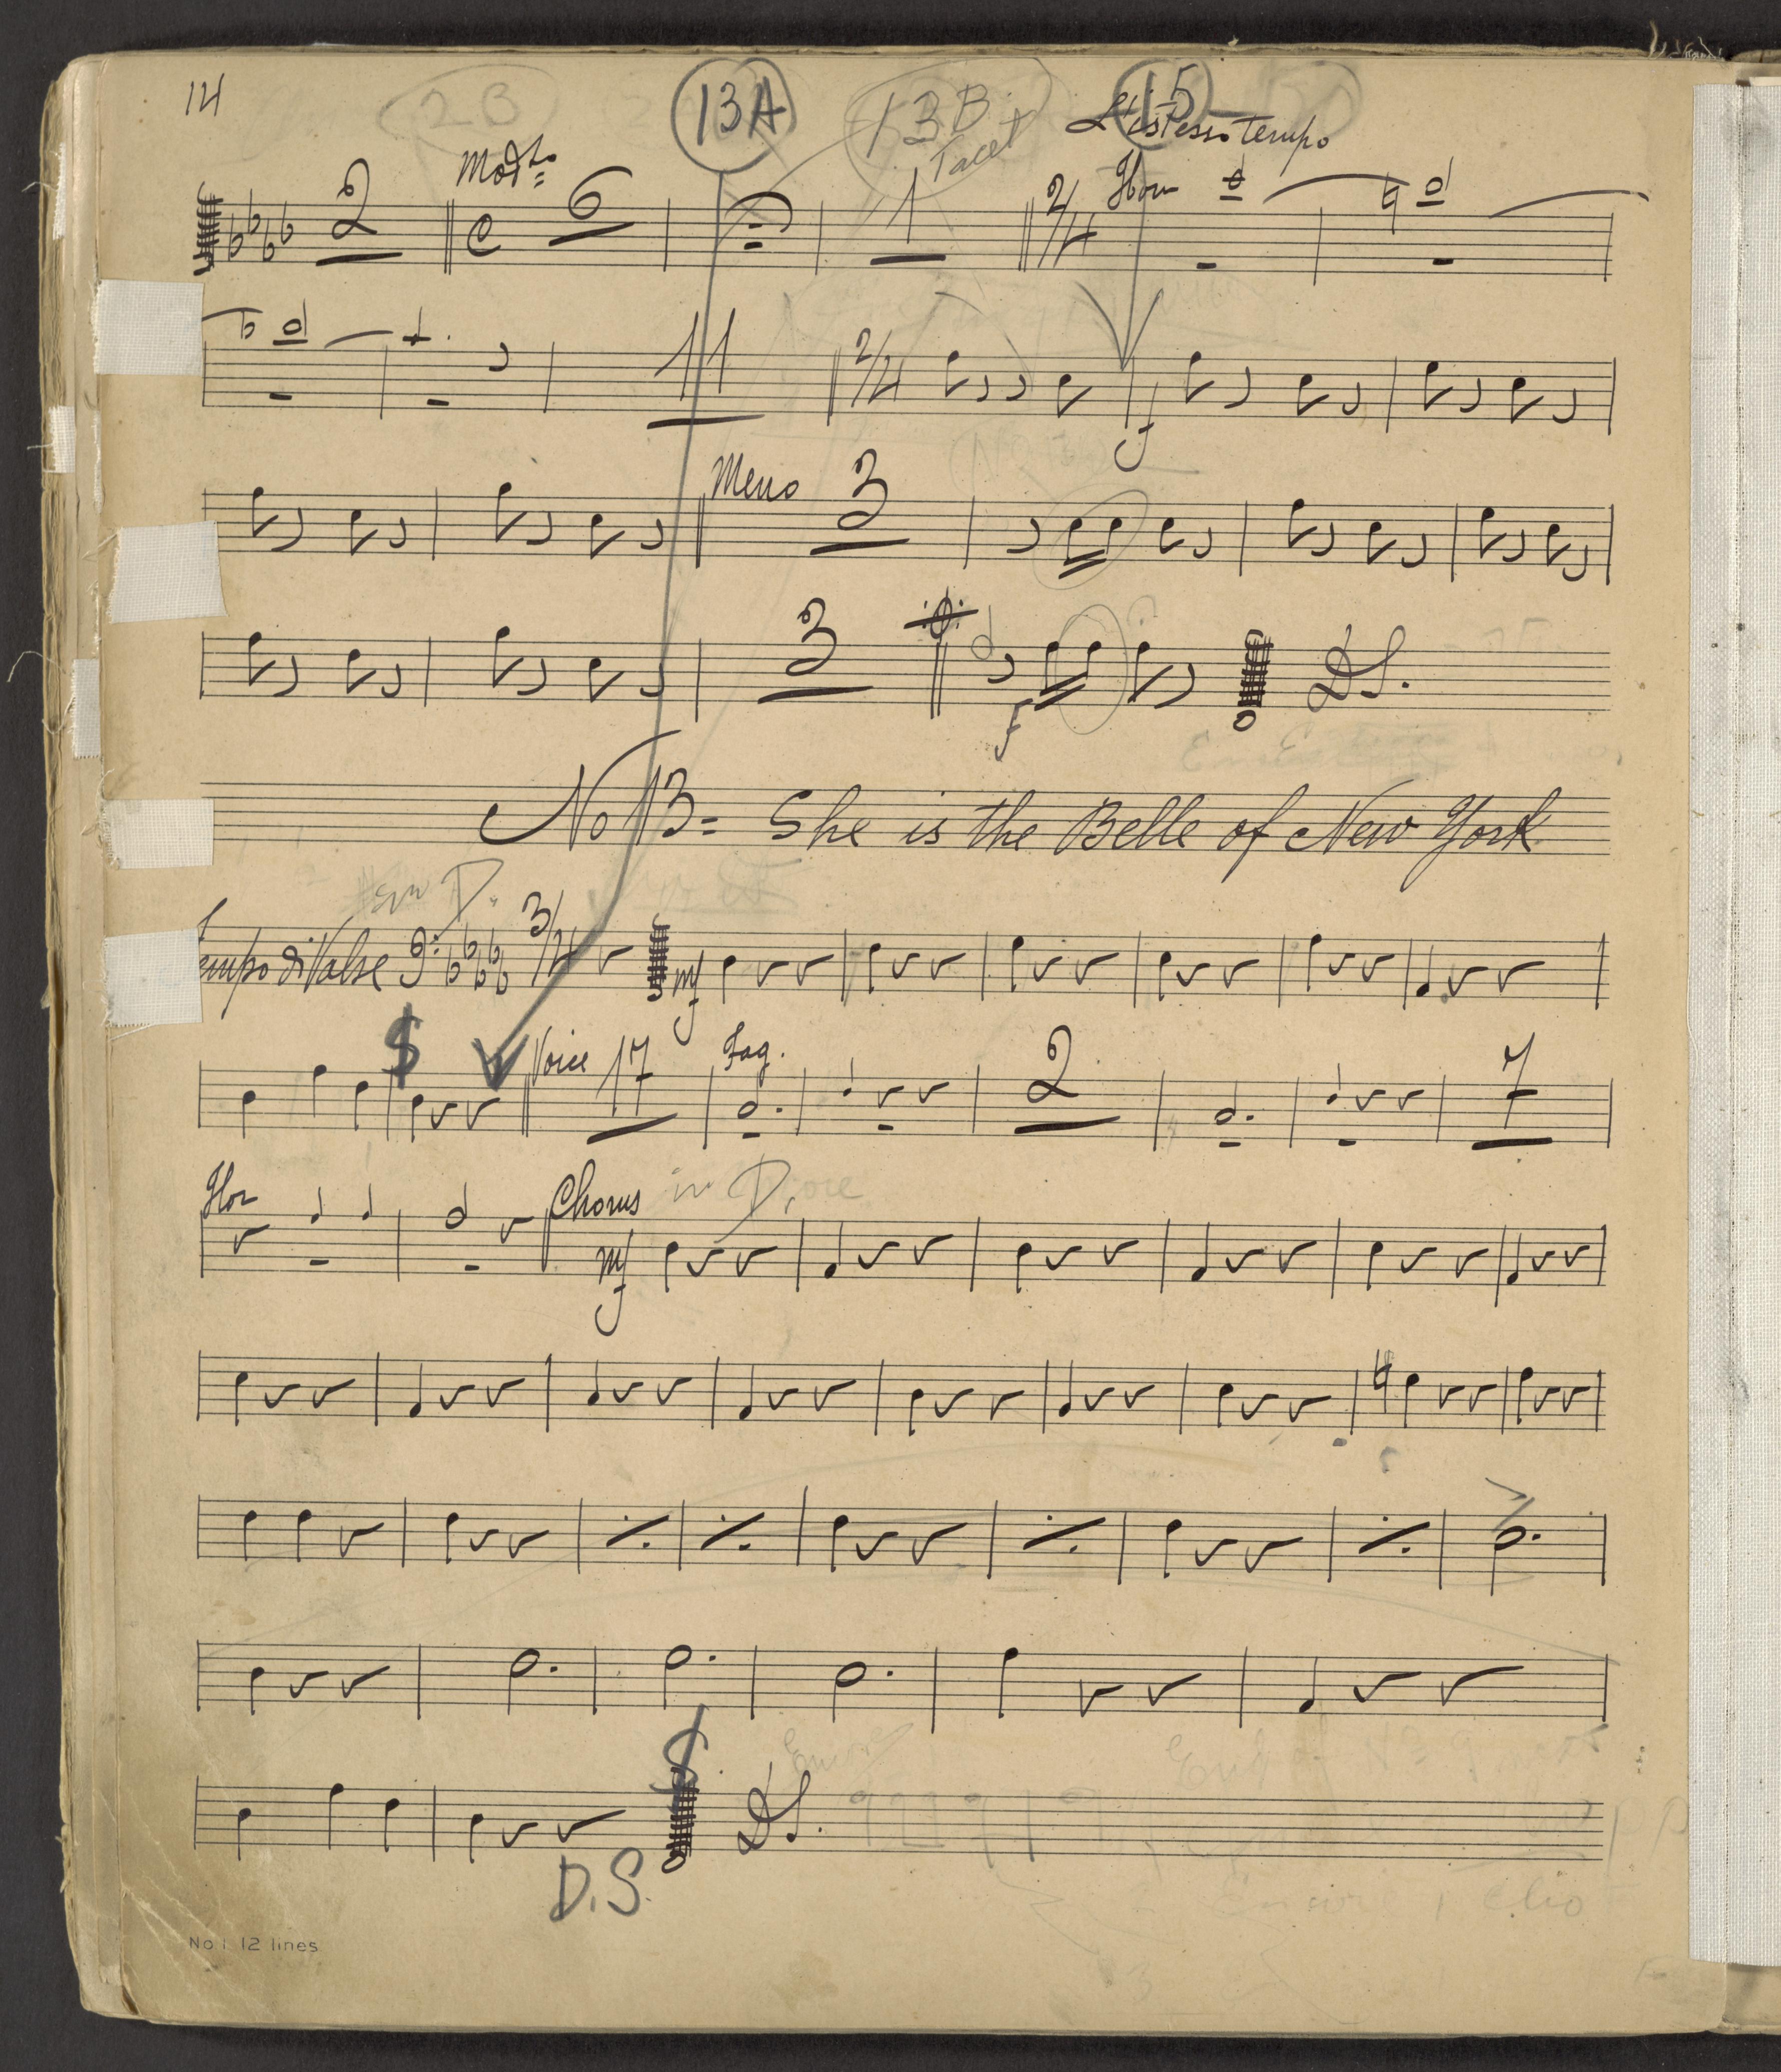 14 2B 13A 13B 15
Tacet L'istesso Tempo
2 Modto C 6 1 2/4 Hor
11 2/4 f
Meno 3
3 f D.S.
No 13 = She is the Belle of New York
in D.
Tempo di Valse 3/4 mf
Voice 17 Fag. 2 7
Hor Chorus in D.
mf
D.S.
D.S.
No 1 12 lines